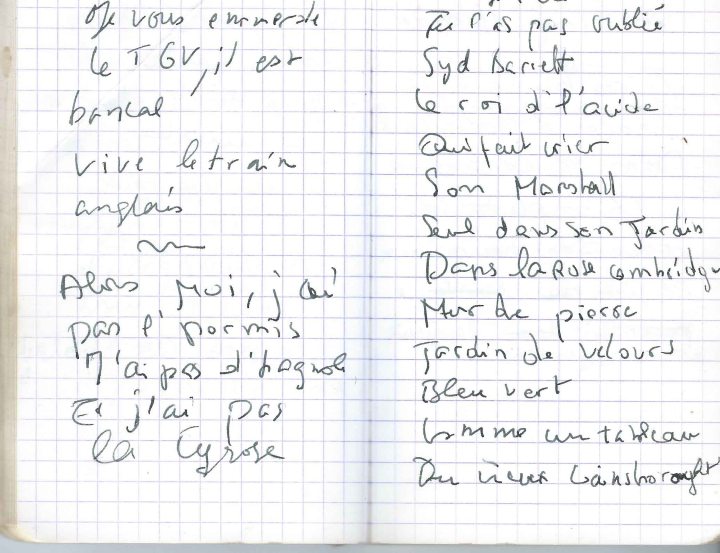 Je vous emmerde
le TGV, il est
bancal
Vive le train
anglais
Alors Moi, j'ai
pas l'permis
J'ai pas d'bagnole
Et j'ai pas
la Cyrose
Tu l'as pas oublié
Syd Barrett
Le roi d'l'acide
Qui fait crier
Son Marshall
Seul dans son Jardin
Dans la rose cambridge
Mur de pierre
Jardin de velours
Bleu vert
Comme un tableau
Du vieux Gainsborought